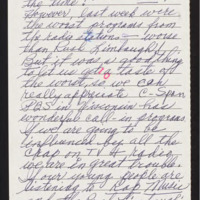 the line! 
However, last week were
the worst programs from
the radio stations — worse
than Rush Limbaugh!
But it was a good thing
to let us get a taste of
the worst, so we can
really appreciate C-Span
PBS in Wisconsin has
wonderful call-in programs.
If we are going to be
influenced by all the
crap on A.M. radio
we are in great trouble.
If our young people are
listening to Rap Music